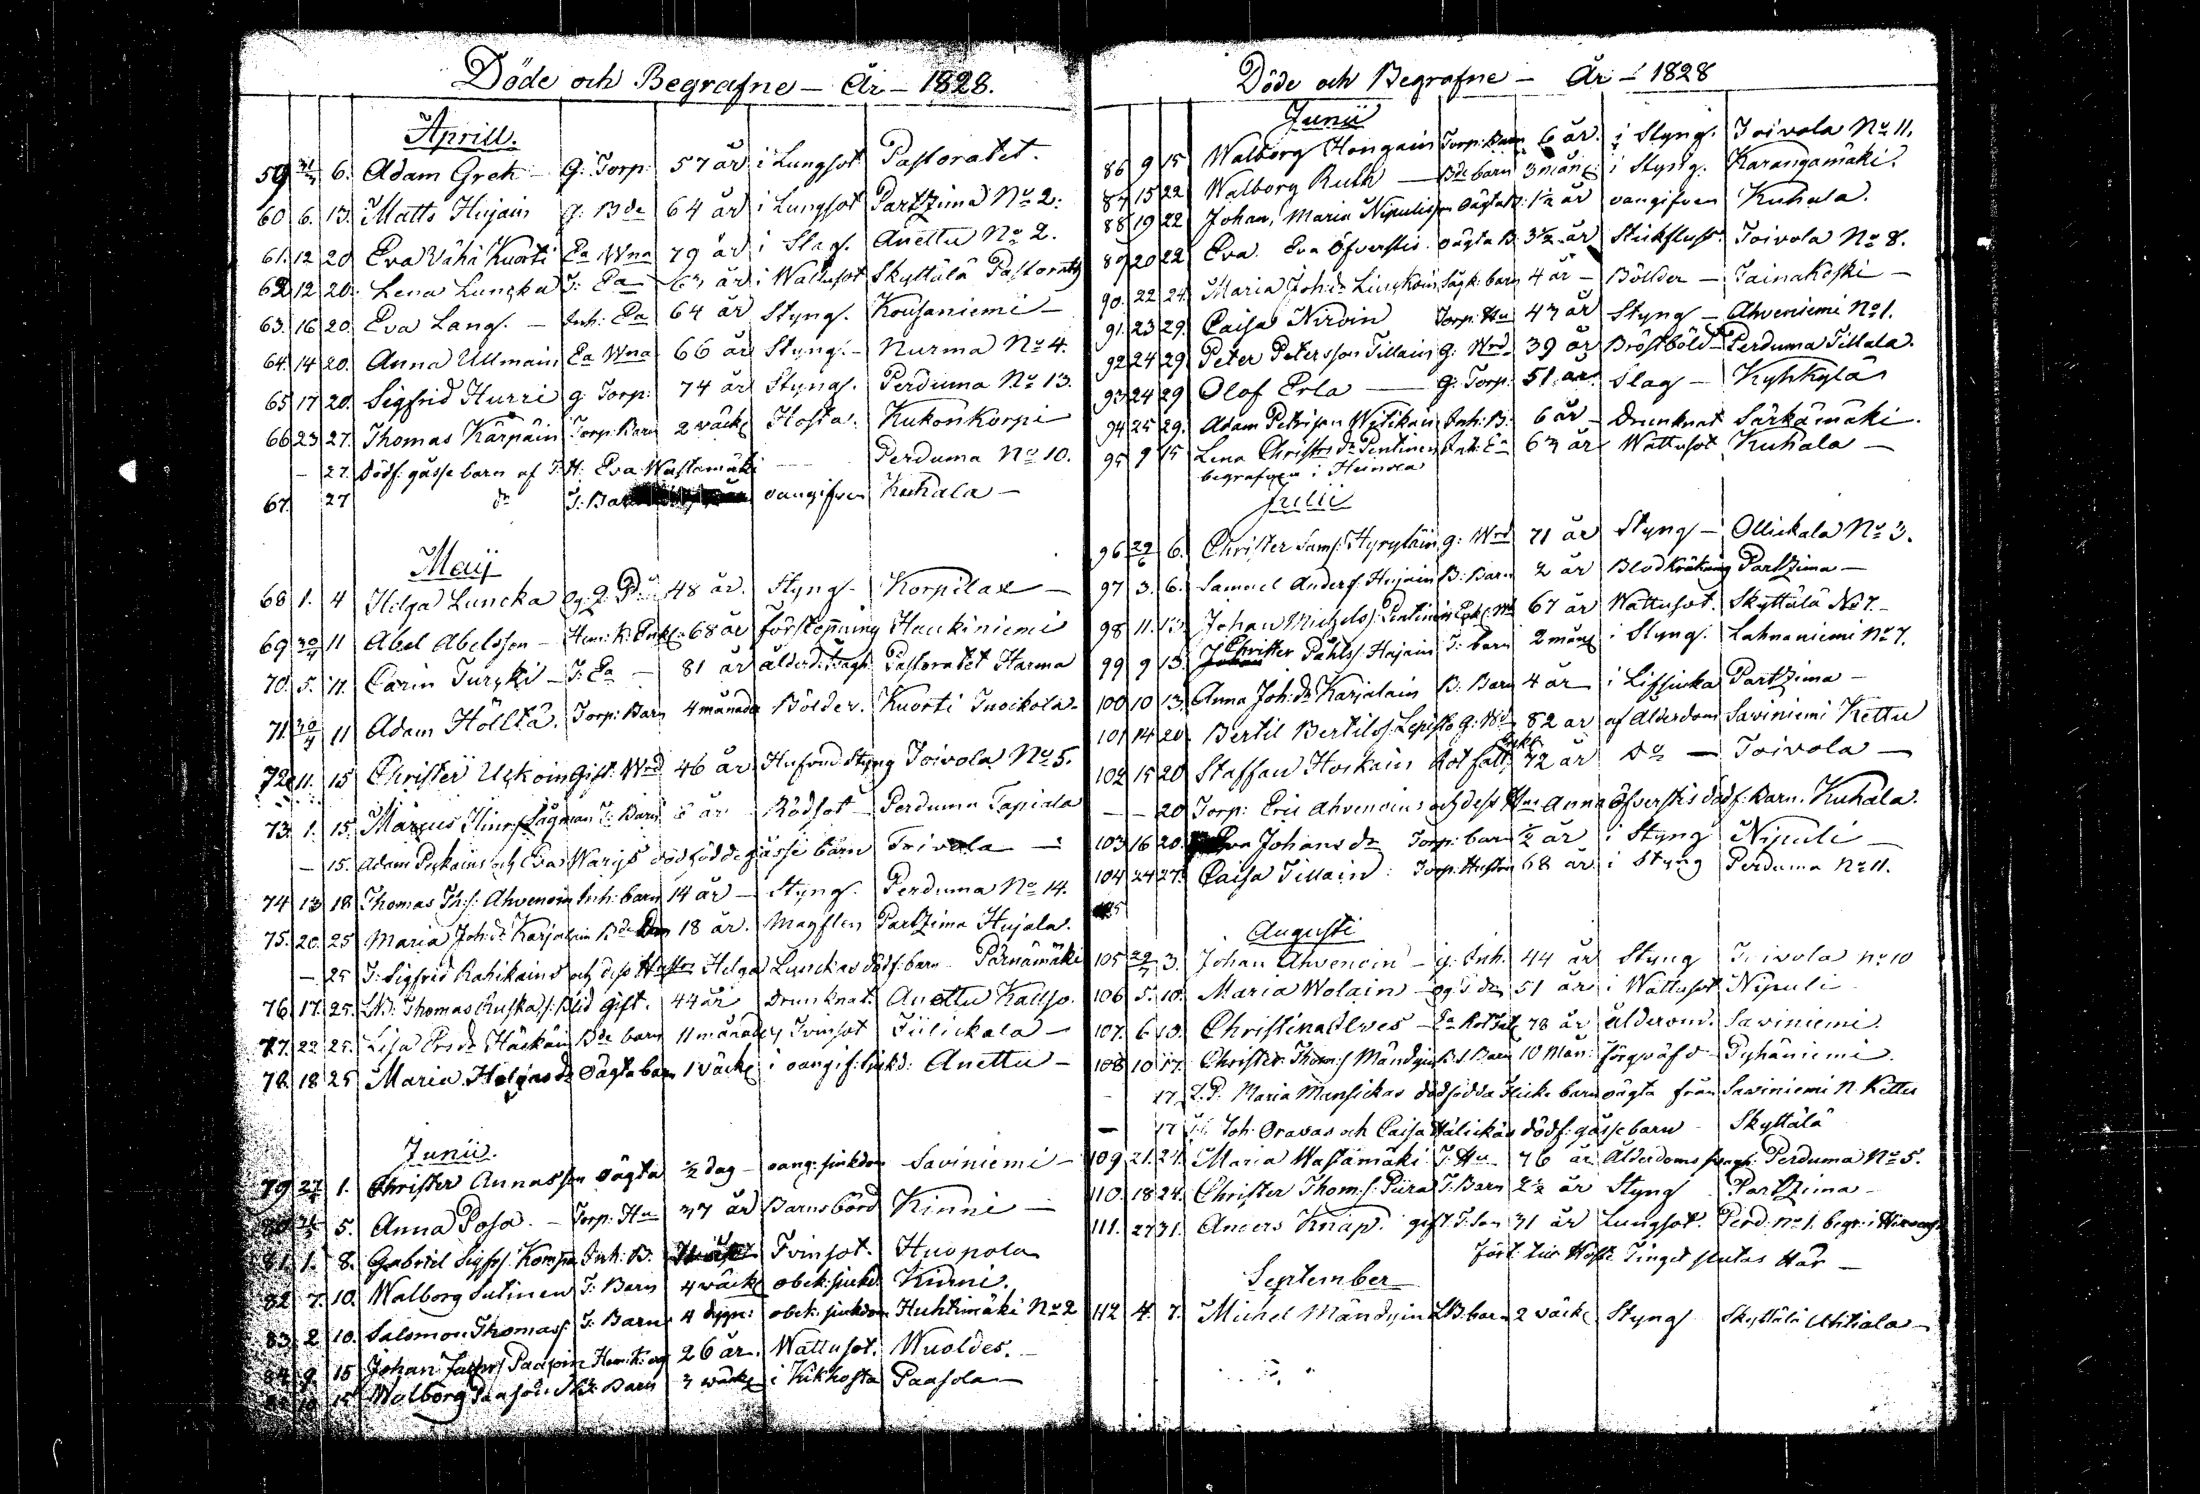 Döde och Begrafne - År - 1828.
Aprill.
59 31/3 6. Adam Grek - G: Torp: 57 år i Lungsot Pastoratet.
60 6. 13. Matts Hujain g: Bde 64 år i Lungsot Partzima No 2.
61. 12 20 Eva Vähä Kuorti Ea Wna 79 år i Slag. Anettu No 2.
62 12 20. Lena Luncka J: Ea 63 år i Wattusot Skyttälä
63. 16 20. Eva Lang. - Inh: Ea 64 år Styng. Kousaniemi -
64. 14 20. Anna Ullmain Ea Wna 66 år Styng. - Nurma No 4.
65 17 20. Sigfrid Hurri g: Torp: 74 år Styng. Perduma No 13.
66 23 27. Thomas Kärpäin Torp: Barn 2 väck Hosta. Kukonkorpi
- 27. Dödf: gåsse barn af J: H: Eva Wastamäki - Perduma No 10.
67. 27 do J: Barn oangifven Kuhala -
Maij
68 1. 4 Helga Luncka 48 år. Styng - Korpilax -
69 30/4 11 Abel Abelsson - 68 år förstoppning Haukiniemi
70. 5. 11. Carin Turski - J: Ea - 81 år ålderd: bragh Pastoratet Harma
71. 30/4 11 Adam Höltta. Torp: Barn 4 månader Bölder. Kuorti Inoikola -
72 11. 15 Christer Uskoin Gift. Wrd 46 år Hufvud Styng Toivola No 5.
73. 1. 15. Marcus Hinr: Sågman J: Barn år Rödsot - Perduma Tapiala
- 15. Adam Pykains och Eva Warijs dödföddde gåsse barn Toivola -
74 13 18 Thomas Th:s: Ahvenoin Inh: barn 14 år - Styng. Perduma No 14.
75. 20. 25 Maria Joh:dr Karjalain Bde 18 år. Magplen Partzima Hujala.
- 25 J: Sigfrid Rahikains och dess Hustru Helga Lunckas dödf: barn Pärnämäki
76. 17. 25. Thomas Ruska gift. 44 år Drunknat. Anettu Kallio.
77. 22 25. Lisa Ersdr Häskäin Bde barn 11 månader Tvinsot Tiilickala -
78. 18 25 Maria Helgasdr oägta barn 1 väck i oangif: siukd: Anettu -
Junii.
79 27/5 1. Christer Annasson oägta 1/2 dag - oang: siukdom Saviniemi -
5. Anna Posa. - Torp: Hu 37 år Barnsbörd Kinni -
81. 1. 8. Gabriel Sigfs: Inh: B. Tvinsot. Huopola
82 7. 10. Walborg Sutinen J: Barn 4 väck obek: siukd Kurni.
83. 2 10. Salomon Thomass: J: Barn 4 dygn: obek: siukdom Huhtimäki No 2
84. 9. 15 Johan Paasoin 26 år. Wattusot. Wuoldes. -
15 Walborg Barn 3 wäck i Kikhosta Paasola -
Döde och Begrafne - År - 1828
Junii
86 9 15 Walborg Hongain Torp: Barn 6 år. i Styng. Toivola No 11.
87 15 22 Walborg Ruth - Bde barn 3 mån i Styng. Karangamäki.
88 19 22 Johan, Maria Nipulisson oägta B. 1 1/2 år oangifven Kuhala.
89 20 22 Eva Eva Öfverstis oägta B. 3 1/2 år Stickfluss. Toivola No 8.
90. 22 24. Maria Joh:dr Linskoin barn 4 år - Bölder - Tainakoski -
91. 23 29. Caisa Nirvin Torp: Hu 43 år Styng - Ahveniemi No 1.
92 24 29 Peter Petersson Tillain g: Wrd. 39 år Bröstböld Perduma Tillala.
93 24 29 Olof Erla - g: Torp: 51 år. Slag - Kyhkylä
94 25 29. Adam Petrison Witikain Inh: B: 6 år - Drunknat Särkämäki.
95 9 15 Lena Christersdr Pentinen Inh: Ea 63 år Wattusot Kuhala -
begrafven i Heinola
Julii
96 29/6 6. Christer Sams: Hyrylain g: Wrd 71 år Styng - Ollickala No 3.
97 3. 6. Samuel Anders: Hujain B: Barn 2 år Blodkräkning Partzima -
98 11. 13. Johan Michels: Pentinen 67 år Wattusot. Skyttälä No 7. -
99 9 13. Christer Påhls: Hujain J: barn 2 mån i Styng. Lahnaniemi No 7.
100 10 13. Anna Joh:dr Karjalain B: Barn 4 år i Partzima -
101 14 20 Bertil Bertils: Lepistö g: Wd 82 år af Ålderdom Saviniemi Kettu
102 15 20 Staffan Hoskain Rot fatt. 72 år do - Toivola -
- - 20 Torp: Eric Ahvenoins och dess Hu Anna Öfverstis dödf: Barn. Kuhala.
103 16 20. Eva Johansdr Torp: barn 1/2 år i Styng Nipuli -
104 24 27. Caisa Tillain: Torp: Hustru 68 år i Styng Perduma No 11.
Augusti
105 29/7 3. Johan Ahvenoin - g: Inh. 44 år Styng Toivola No 10
106 5. 10. Maria Wolain - 51 år i Wattusot Nipuli
107. 6 10. Christina Ilves - Ea 78 år ålderdom. Saviniemi.
108 10 17. Christer Thoms: Mändyin Barn 10 Mån: Pyhäniemi.
- 17. Maria Mansickas dödfödda flicke barn oägta från Saviniemi N. Kettu
- 17 Joh: Oravas och Caisa Hälickäs dödf: gåssebarn - Skyttälä
109 21. 24. Maria Wastamäki J: Hu 76 år Ålderdoms Perduma No 5.
110 18 24. Christer Thom:s: Piira J: Barn 2 1/2 år Styng Partzima -
111. 27 31. Anders Knap. gift J: Son 31 år Lungsot. Perd: No 1. begr: i
Tinget slutas Här -
September
112 4. 7. Michel Mändyin LB: barn 2 väck Styng Skyttälä Utitiala -